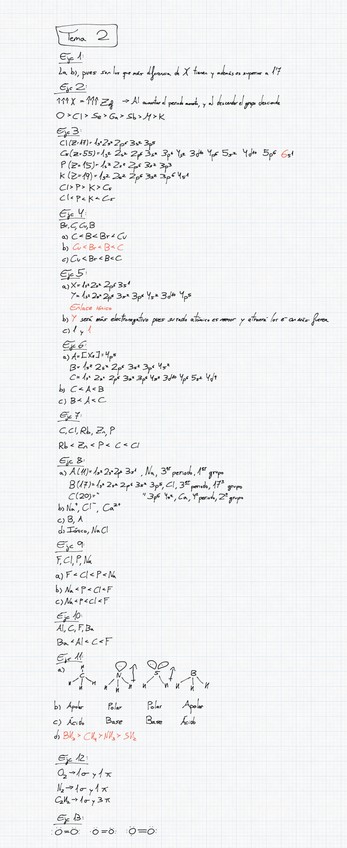 Tema 2
Eje 1:
La b), pues son los que más diferencia de X tienen y además es superior a 1'7
Eje 2:
↑↑↑X = ↑↑↑Zef → Al aumentar el periodo aumenta, y al descender el grupo desciende
O > Cl > Se > Ga > Sb > M > K
Eje 3:
Cl (Z=17) = 1s² 2s² 2p⁶ 3s² 3p⁵
Cs (Z=55) = 1s² 2s² 2p⁶ 3s² 3p⁶ 4s² 3d¹⁰ 4p⁶ 5s² 4d¹⁰ 5p⁶ 6s¹
P (Z=15) = 1s² 2s² 2p⁶ 3s² 3p³
K (Z=19) = 1s² 2s² 2p⁶ 3s² 3p⁶ 4s¹
Cl > P > K > Cs
Cl < P < K < Cs
Eje 4:
Br, C, Cu, B
a) C < B < Br < Cu
b) Cu < Br < B < C
c) Cu < Br < B < C
Eje 5:
a) X = 1s² 2s² 2p⁶ 3s¹
Y = 1s² 2s² 2p⁶ 3s² 3p⁶ 4s² 3d¹⁰ 4p⁵
Enlace iónico
b) Y será más electronegativo pues su radio atómico es menor y atraerá los e⁻ con más fuerza
c) 1 y 1
Eje 6:
a) A = [Xe] = 4p⁴
B = 1s² 2s² 2p⁶ 3s² 3p⁶ 4s²
C = 1s² 2s² 2p⁶ 3s² 3p⁶ 4s² 3d¹⁰ 4p⁶ 5s² 4d⁴
b) C < A < B
c) B < A < C
Eje 7:
C, Cl, Rb, Zn, P
Rb < Zn < P < C < Cl
Eje 8:
a) A (11) = 1s² 2s² 2p⁶ 3s¹, Na, 3er periodo, 1er grupo
B (17) = 1s² 2s² 2p⁶ 3s² 3p⁵, Cl, 3er periodo, 17º grupo
C (20) = " " 3p⁶ 4s², Ca, 4º periodo, 2º grupo
b) Na⁺, Cl⁻, Ca²⁺
c) B, A
d) Iónico, NaCl
Eje 9:
F, Cl, P, Na
a) F < Cl < P < Na
b) Na < P < Cl < F
c) Na < P < Cl < F
Eje 10:
Al, C, F, Ba
Ba < Al < C < F
Eje 11:
a) C H H H H N H H H S H H B H H H
b) Apolar Polar Polar Apolar
c) Ácido Base Base Ácido
d) BH₃ > CH₄ > NH₃ > SH₂
Eje 12:
O₂ → 1σ y 1π
N₂ → 1σ y 1π
C₂H₂ → 1σ y 3π
Eje 13:
:O=O: :O=O: :O=O: